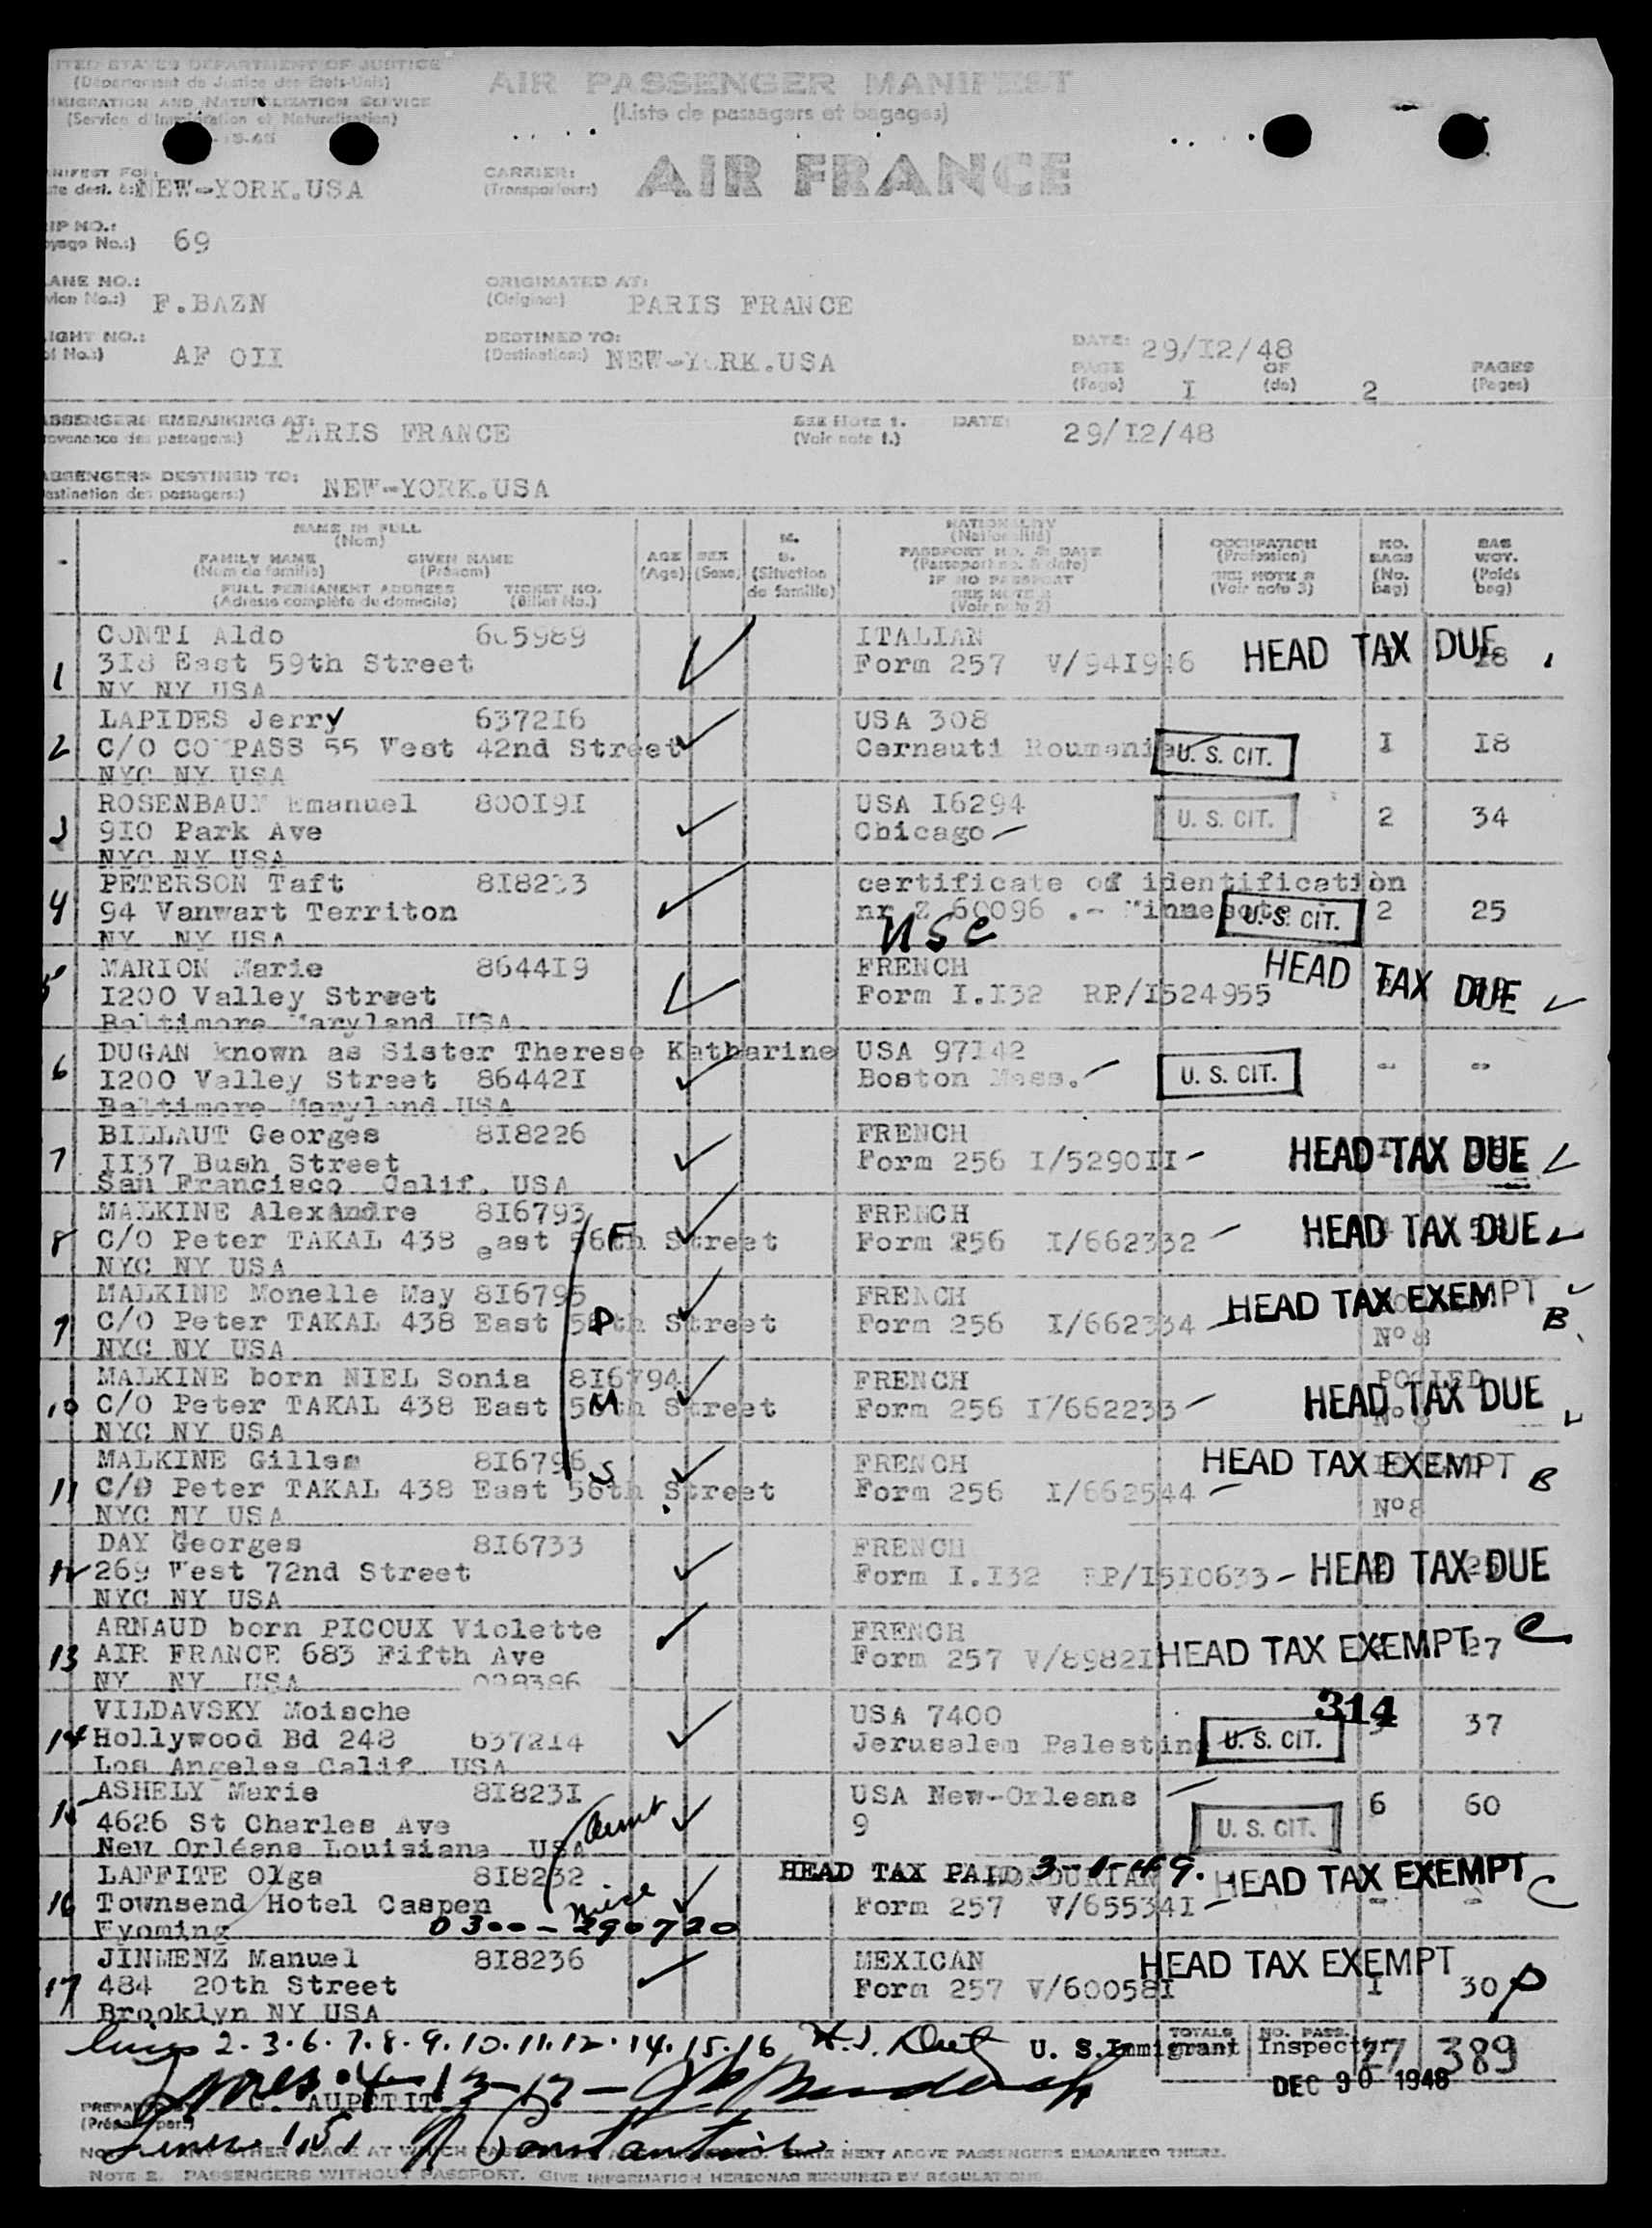 ITED STATES DEPARTMENT OF JUSTICE
(Département de Justice des Etats-Unis)
MIGRATION AND NATURALIZATION SERVICE
(Service d'Immigration et Naturalisation)
AIR PASSENGER MANIFEST
(Liste de passagers et bagages)
NIFEST FOR: NEW-YORK.USA
CARRIER:
(Transporteur:)
AIR FRANCE
IP NO.:
69
ANE NO.:
F.BAZN
ORIGINATED AT:
(Origine:) PARIS FRANCE
IGHT NO.:
AF OII
DESTINED TO:
(Destination:) NEW-Y RK.USA
DATE: 29/I2/48
PAGE (Page) I OF (de) 2 PAGES (Pages)
ASSENGERS EMBARKING AT: PARIS FRANCE
ovenance des passagers:)
SEE NOTE 1.
(Voir note 1.)
DATE: 29/I2/48
ASSENGERS DESTINED TO: NEW-YORK.USA
estination des passagers:)
NAME IN FULL
(Nom)
FAMILY NAME GIVEN NAME
(Nom de famille) (Prénom)
FULL PERMANENT ADDRESS TICKET NO.
(Adresse complète du domicile) (Billet No.)
AGE (Age)
SEX (Sexe)
M. S. (Situction de famille)
NATIONALITY
(Nationalité)
PASSPORT NO. & DATE
(Passeport no. & date)
IF NO PASSPORT
SEE NOTE 2
(Voir note 2)
OCCUPATION
(Profession)
SEE NOTE 3
(Voir note 3)
NO. BAGS (No. bag)
BAG WGT. (Poids bag)
CONTI Aldo 605989 ITALIAN
1 3I8 East 59th Street Form 257 V/94I946 HEAD TAX DUE
NY NY USA
LAPIDES Jerry 6372I6 USA 308
2 C/O CO PASS 55 West 42nd Street Cernauti Roumanie U. S. CIT. I I8
NYC NY USA
ROSENBAUM Emanuel 800I9I USA I6294
3 9I0 Park Ave Chicago U. S. CIT. 2 34
NYC NY USA
PETERSON Taft 8I8233 certificate of identification
4 94 Vanwart Territon nr Z 60096 .- Minnesote U. S. CIT. 2 25
NY NY USA USC
MARION Marie 8644I9 FRENCH HEAD TAX DUE
5 I200 Valley Street Form I.I32 RP/I524955
Baltimore Maryland USA
DUGAN known as Sister Therese Katharine USA 97I42
6 I200 Valley Street 86442I Boston Mass. U. S. CIT. - -
Baltimore Maryland USA
BILLAUT Georges 8I8226 FRENCH
7 II37 Bush Street Form 256 I/5290II HEAD TAX DUE
San Francisco Calif. USA
MALKINE Alexandre 8I6793 FRENCH
8 C/O Peter TAKAL 438 east 56th Street F Form 256 I/662332 HEAD TAX DUE
NYC NY USA
MALKINE Monelle May 8I6795 FRENCH HEAD TAX EXEMPT
9 C/O Peter TAKAL 438 East 56th Street D Form 256 I/662334 N°8 B
NYC NY USA
MALKINE born NIEL Sonia 8I6794 FRENCH POOLED
10 C/O Peter TAKAL 438 East 56th Street M Form 256 I/662233 HEAD TAX DUE N°8
NYC NY USA
MALKINE Gilles 8I6796 FRENCH HEAD TAX EXEMPT B
11 C/O Peter TAKAL 438 East 56th Street S Form 256 I/662544 N°8
NYC NY USA
DAY Georges 8I6733 FRENCH
12 269 West 72nd Street Form I.I32 RP/I5I0633 HEAD TAX DUE
NYC NY USA
ARNAUD born PICOUX Violette FRENCH C
13 AIR FRANCE 683 Fifth Ave Form 257 V/8982I HEAD TAX EXEMPT 27
NY NY USA 028386
VILDAVSKY Moische USA 7400 314
14 Hollywood Bd 248 6372I4 Jerusalem Palestine U. S. CIT. 37
Los Angeles Calif. USA
ASHELY Marie 8I823I USA New-Orleans
15 4626 St Charles Ave Aunt 9 U. S. CIT. 6 60
New Orléans Louisiana USA
LAFFITE Olga 8I8232 HEAD TAX PAID 3-1-49. HONDURIAN HEAD TAX EXEMPT C
16 Townsend Hotel Caspen niece Form 257 V/65534I - -
Wyoming 0300-290720
JINMENZ Manuel 8I8236 MEXICAN HEAD TAX EXEMPT
17 484 20th Street Form 257 V/60058I I 30 P
Brooklyn NY USA
lines 2.3.6.7.8.9.10.11.12.14.15.16
U. S. Immigrant Inspector
TOTALS NO. PASS. 27 389
DEC 30 1948
Lines 4-13-17-
C. AUPETIT
(Préparé par:)
Lines 1.5.
NEXT ABOVE PASSENGERS EMBARKED THERE.
NOTE 2. PASSENGERS WITHOUT PASSPORT. GIVE INFORMATION HEREON AS REQUIRED BY REGULATIONS